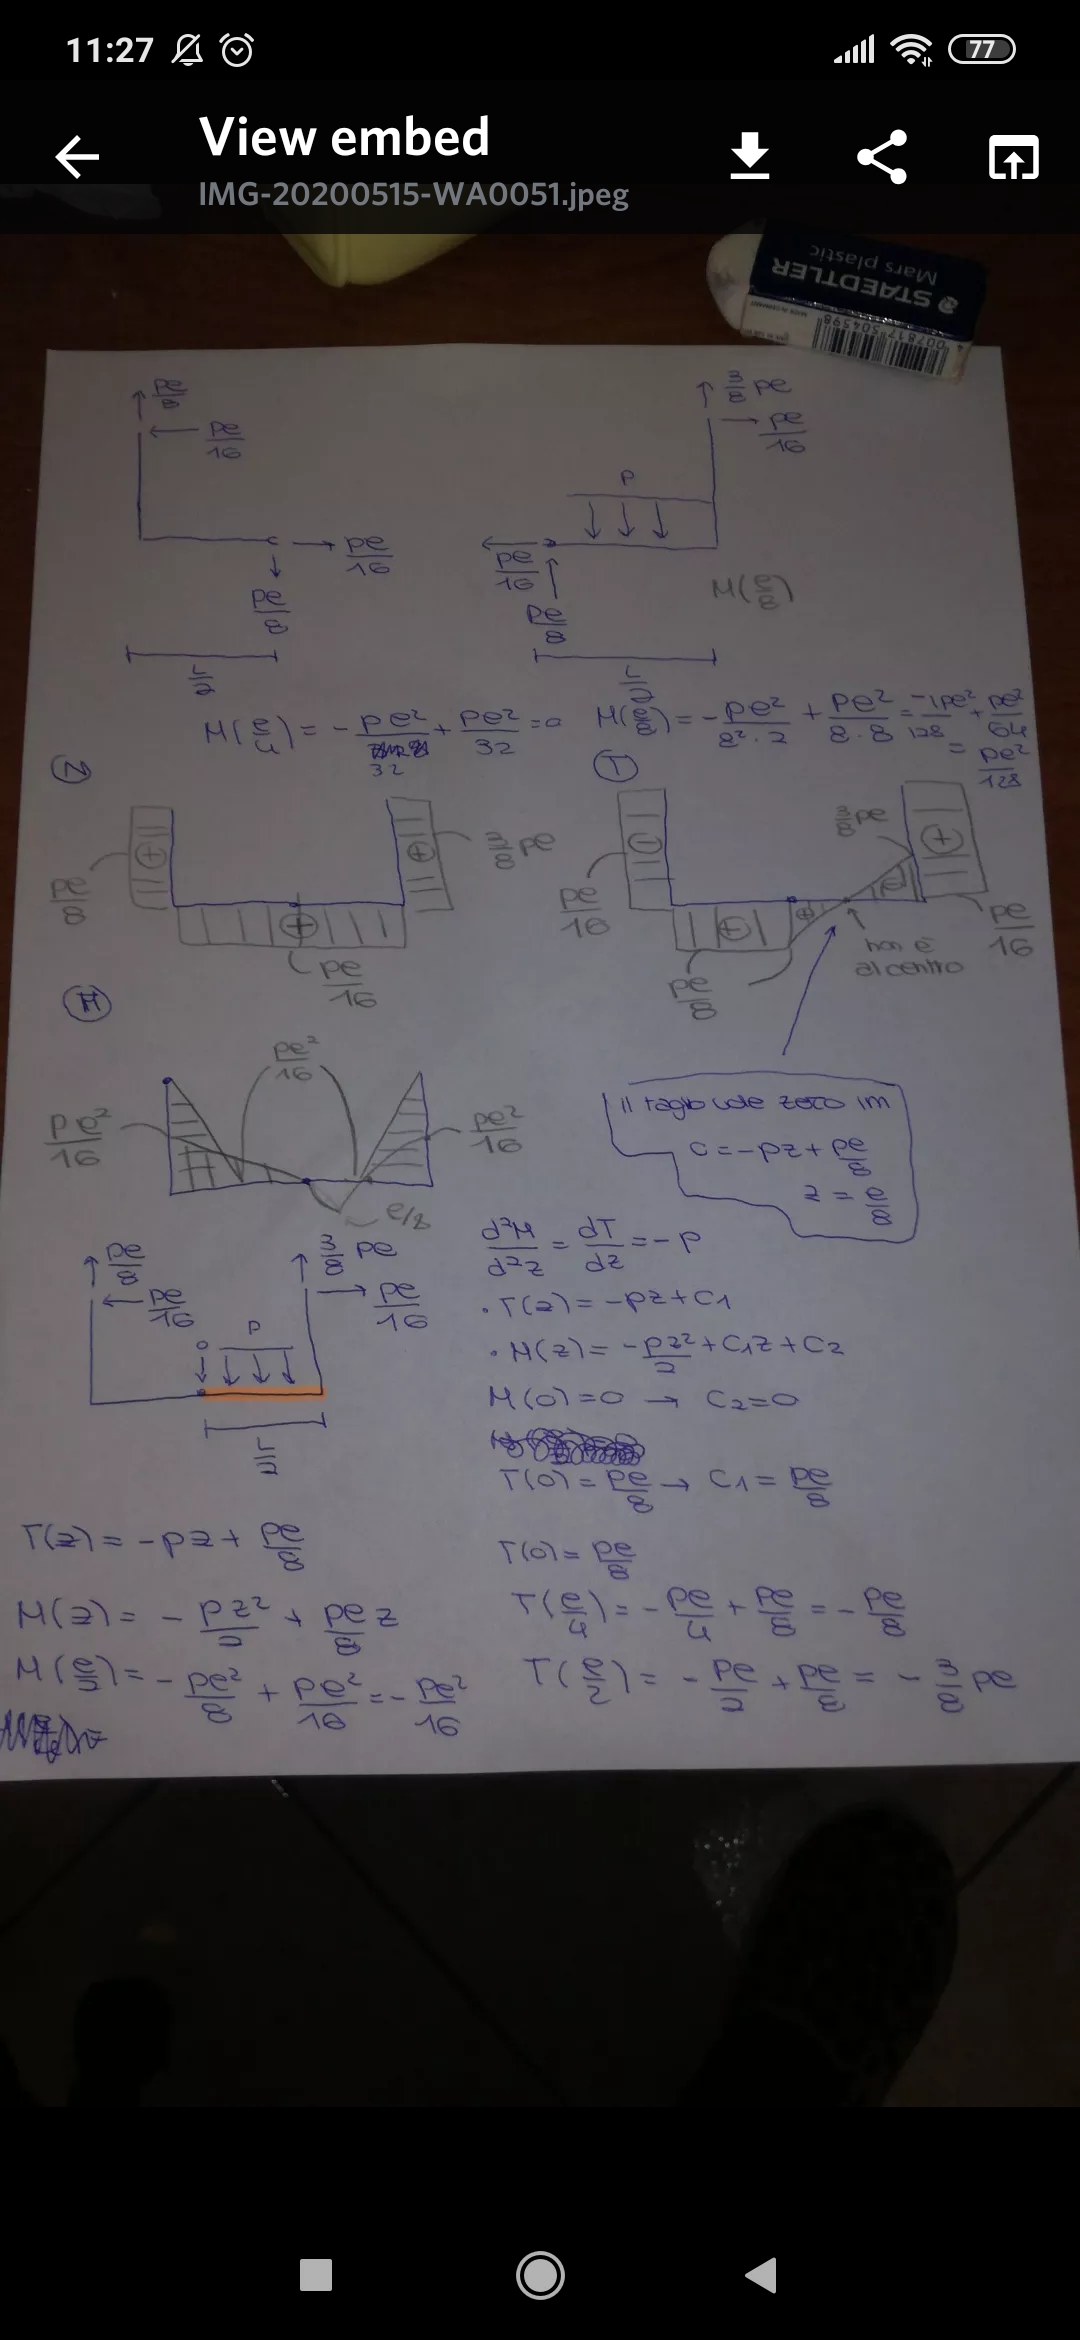 11:27
77
View embed
IMG-20200515-WA0051.jpeg
STAEDTLER
Mars plastic
pe/8
pe/16
pe/16
pe/8
L/2
3/8 pe
pe/16
P
pe/16
pe/8
M(e/8)
L/2
M(e/4) = - pe²/32 + pe²/32 = 0
M(e/8) = - pe²/8²·2 + pe²/8·8 = -1pe²/128 + pe²/64 = pe²/128
N
+
+
+
pe/8
3/8 pe
pe/16
T
-
+
+
-
+
pe/16
pe/8
3/8 pe
pe/16
non è al centro
M
pe²/16
pe²/16
pe²/16
e/8
il taglio vale zero im
0 = -pz + pe/8
z = e/8
pe/8
pe/16
P
3/8 pe
pe/16
L/2
d²M/d²z = dT/dz = -p
· T(z) = -pz + C1
· M(z) = - pz²/2 + C1z + C2
M(0) = 0 → C2 = 0
T(0) = pe/8 → C1 = pe/8
T(z) = -pz + pe/8
M(z) = - pz²/2 + pe/8 z
M(e/2) = - pe²/8 + pe²/16 = - pe²/16
T(0) = pe/8
T(e/4) = - pe/4 + pe/8 = - pe/8
T(e/2) = - pe/2 + pe/8 = - 3/8 pe